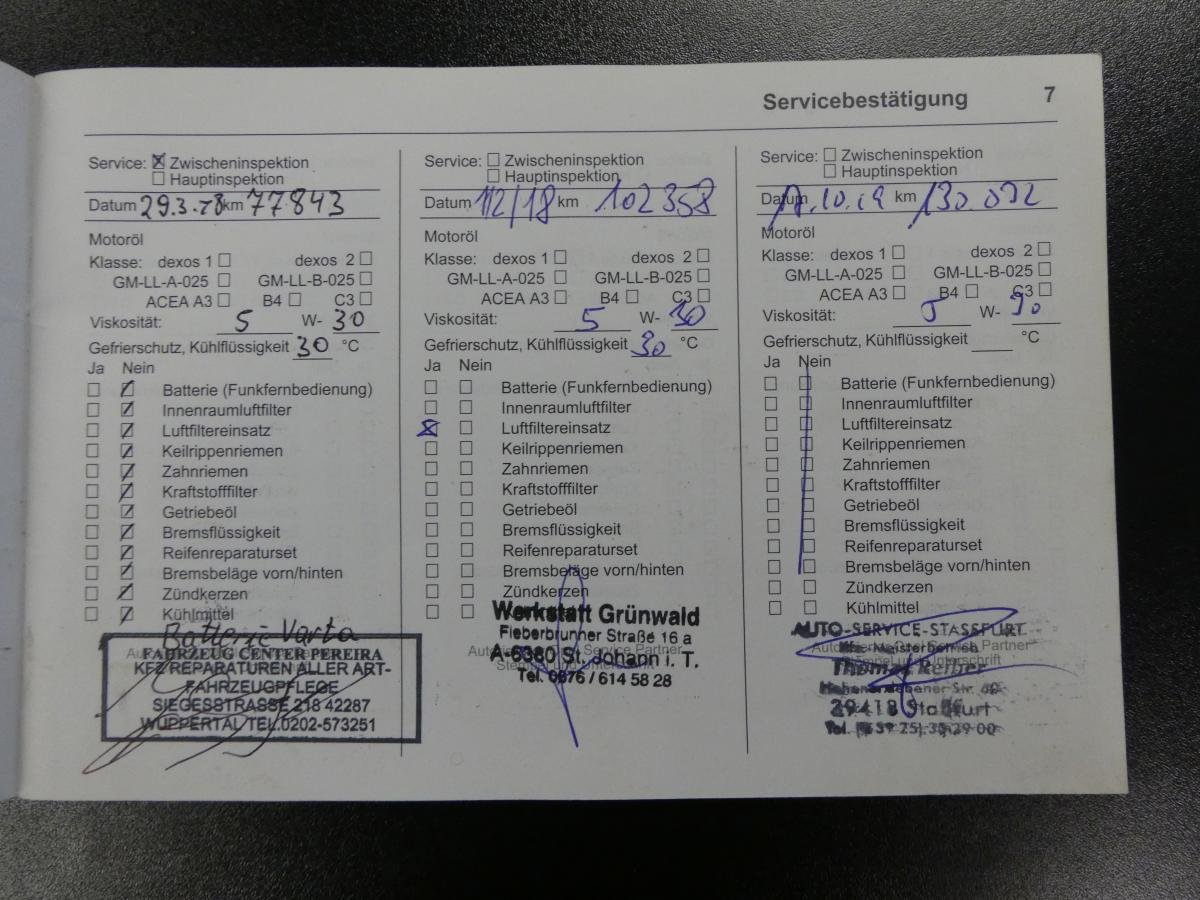 Servicebestätigung 7
Service: Zwischeninspektion
Hauptinspektion
Datum 29.3.18 km 77.843
Motoröl
Klasse: dexos 1 dexos 2
GM-LL-A-025 GM-LL-B-025
ACEA A3 B4 C3
Viskosität: 5 W- 30
Gefrierschutz, Kühlflüssigkeit 30 °C
Ja Nein
Batterie (Funkfernbedienung)
Innenraumluftfilter
Luftfiltereinsatz
Keilrippenriemen
Zahnriemen
Kraftstofffilter
Getriebeöl
Bremsflüssigkeit
Reifenreparaturset
Bremsbeläge vorn/hinten
Zündkerzen
Kühlmittel
Batterie Varta
FAHRZEUG CENTER PEREIRA
KFZ REPARATUREN ALLER ART-
FAHRZEUGPFLEGE
SIEGESSTRASSE 218 42287
WUPPERTAL TEL.0202-573251
Service: Zwischeninspektion
Hauptinspektion
Datum 12/18 km 102358
Motoröl
Klasse: dexos 1 dexos 2
GM-LL-A-025 GM-LL-B-025
ACEA A3 B4 C3
Viskosität: 5 W- 30
Gefrierschutz, Kühlflüssigkeit 30 °C
Ja Nein
Batterie (Funkfernbedienung)
Innenraumluftfilter
Luftfiltereinsatz
Keilrippenriemen
Zahnriemen
Kraftstofffilter
Getriebeöl
Bremsflüssigkeit
Reifenreparaturset
Bremsbeläge vorn/hinten
Zündkerzen
Werkstatt Grünwald
Fieberbrunner Straße 16 a
Service Partner
A-6380 St. Johann i. T.
Tel. 0676 / 614 58 28
Service: Zwischeninspektion
Hauptinspektion
Datum km 130.092
Motoröl
Klasse: dexos 1 dexos 2
GM-LL-A-025 GM-LL-B-025
ACEA A3 B4 C3
Viskosität: 5 W-
Gefrierschutz, Kühlflüssigkeit °C
Ja Nein
Batterie (Funkfernbedienung)
Innenraumluftfilter
Luftfiltereinsatz
Keilrippenriemen
Zahnriemen
Kraftstofffilter
Getriebeöl
Bremsflüssigkeit
Reifenreparaturset
Bremsbeläge vorn/hinten
Zündkerzen
Kühlmittel
AUTO-SERVICE-STASSFURT
Kfz.-Meisterbetrieb
Partner
Unterschrift
Thomas
Str.
39418 Staßfurt
Tel.